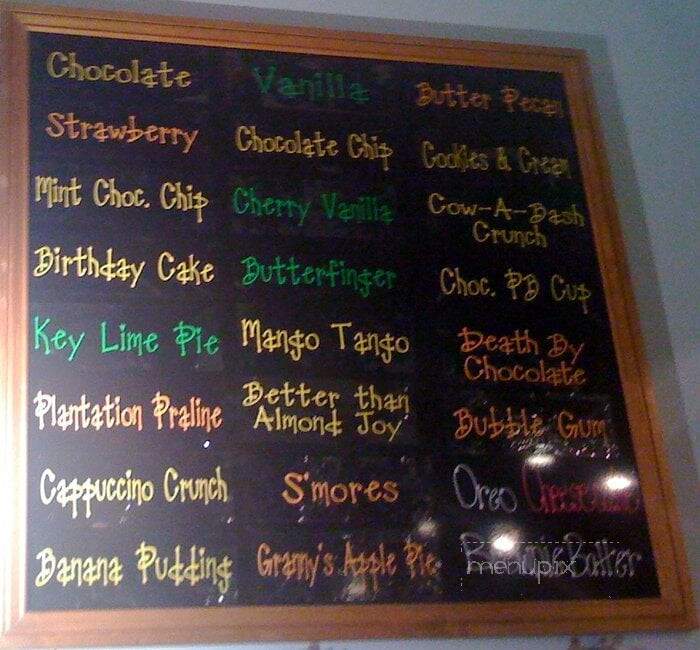 Chocolate
Vanilla
Butter Pecan
Strawberry
Chocolate Chip
Cookies & Cream
Mint Choc. Chip
Cherry Vanilla
Cow-A-Bash
Crunch
Birthday Cake
Butterfinger
Choc. PB Cup
Key Lime Pie
Mango Tango
Death By
Chocolate
Plantation Praline
Better than
Almond Joy
Bubble Gum
Cappuccino Crunch
S'mores
Oreo Cheesecake
Banana Pudding
Granny's Apple Pie
Batter
menupix